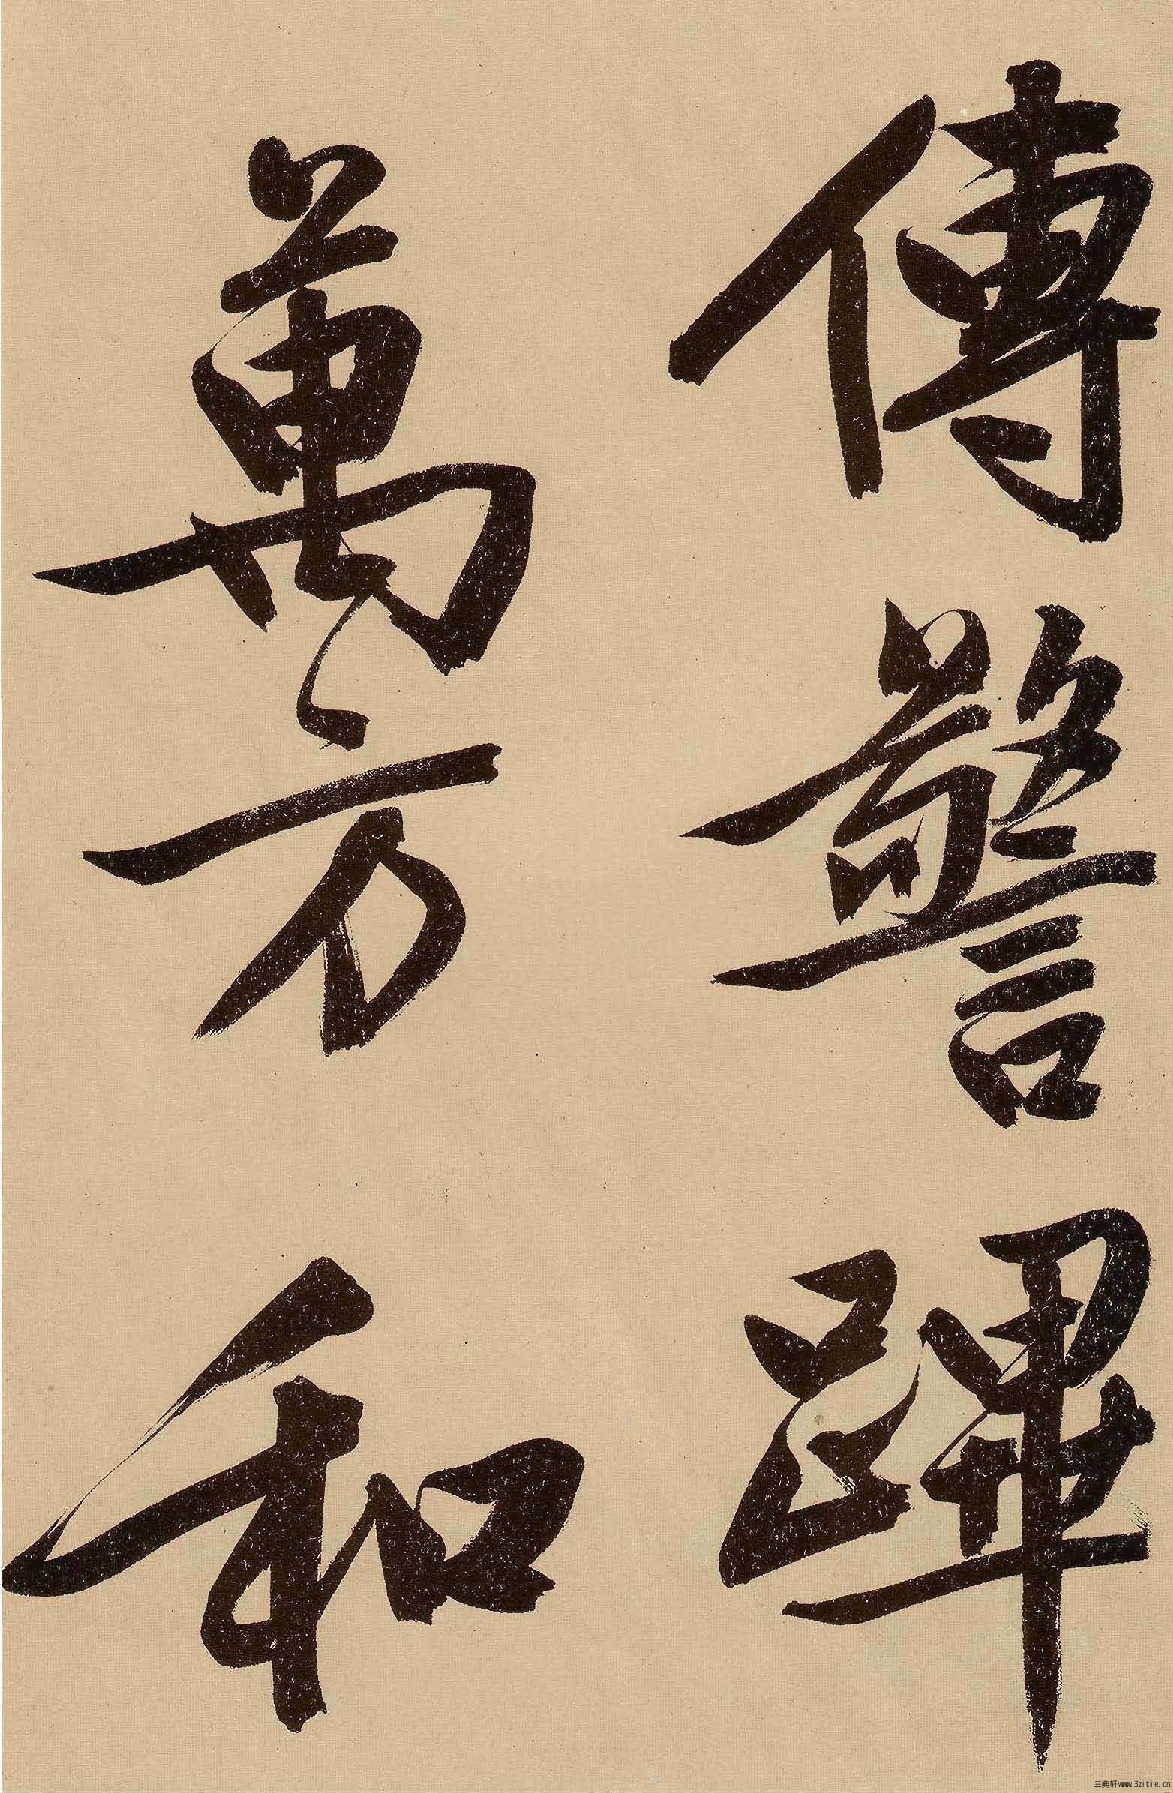 傳警蹕
萬方和
三典轩www.3zitie.cn